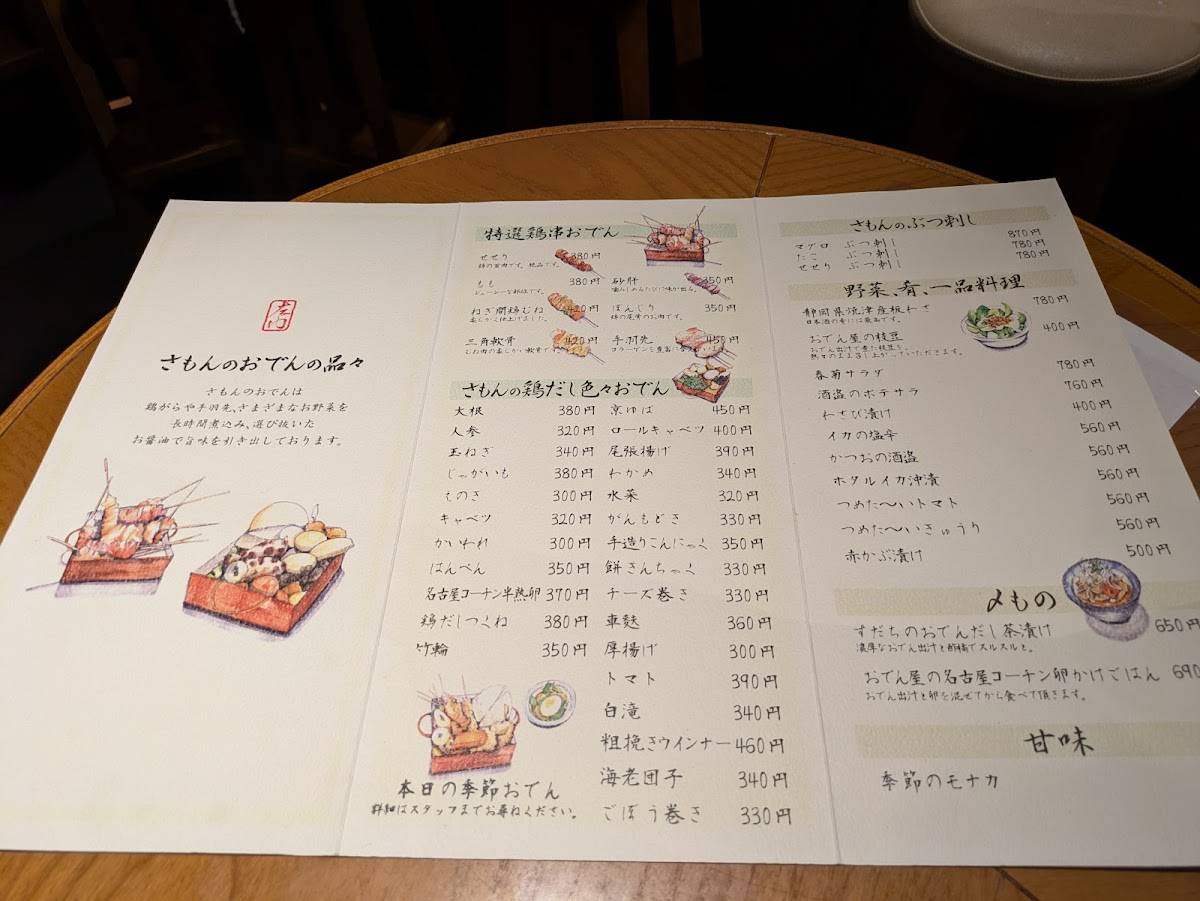 さもんのおでんの品々
さもんのおでんは
鶏がらや手羽先、さまざまなお野菜を
長時間煮込み、選び抜いた
お醤油で旨味を引き出しております。
特選鶏串おでん
せせり 380円
鶏の首肉です。絶品です。
もも 380円
ジューシーな部位です。
砂肝 350円
噛みしめるたびに味が出る。
ねぎ間鶏むね 420円
柔らかく仕上げました。
ぼんじり 350円
鶏の尾骨のお肉です。
三角軟骨 420円
むね肉の柔らかい軟骨です。
手羽先 450円
さもんの鶏だし色々おでん
大根 380円
人参 320円
玉ねぎ 340円
じゃがいも 380円
えのき 300円
キャベツ 320円
かいわれ 300円
はんぺん 350円
名古屋コーチン半熟卵 370円
鶏だしつくね 380円
竹輪 350円
京ゆば 450円
ロールキャベツ 400円
尾張揚げ 390円
わかめ 340円
水菜 320円
がんもどき 330円
手造りこんにゃく 350円
餅きんちゃく 330円
チーズ巻き 330円
車麩 360円
厚揚げ 300円
トマト 390円
白滝 340円
粗挽きウインナー 460円
海老団子 340円
ごぼう巻き 330円
本日の季節おでん
詳細はスタッフまでお尋ねください。
さもんのぶつ刺し
マグロ ぶつ刺し 870円
たこ ぶつ刺し 780円
せせり ぶつ刺し 780円
野菜、肴、一品料理
静岡県焼津産板わさ 780円
日本酒の肴には最高です。
おでん屋の枝豆 400円
おでん出汁で煮た枝豆を、
熱々のままお召し上がっていただきます。
春菊サラダ 780円
酒盗のポテサラ 760円
わさび漬け 400円
イカの塩辛 560円
かつおの酒盗 560円
ホタルイカ沖漬 560円
つめた〜いトマト 560円
つめた〜いきゅうり 560円
赤かぶ漬け 500円
〆もの
すだちのおでんだし茶漬け 650円
濃厚なおでん出汁と酢橘でスルスルと。
おでん屋の名古屋コーチン卵かけごはん 690
おでん出汁と卵を混ぜてから食べて頂きます。
甘味
季節のモナカ